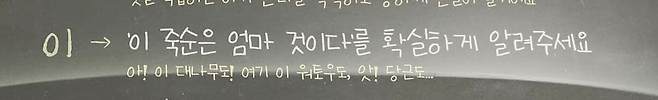 이 → '이 죽순은 엄마 것이다'를 확실하게 알려주세요
아! 이 대나무도! 여기 이 워토우도, 앗! 당근도...